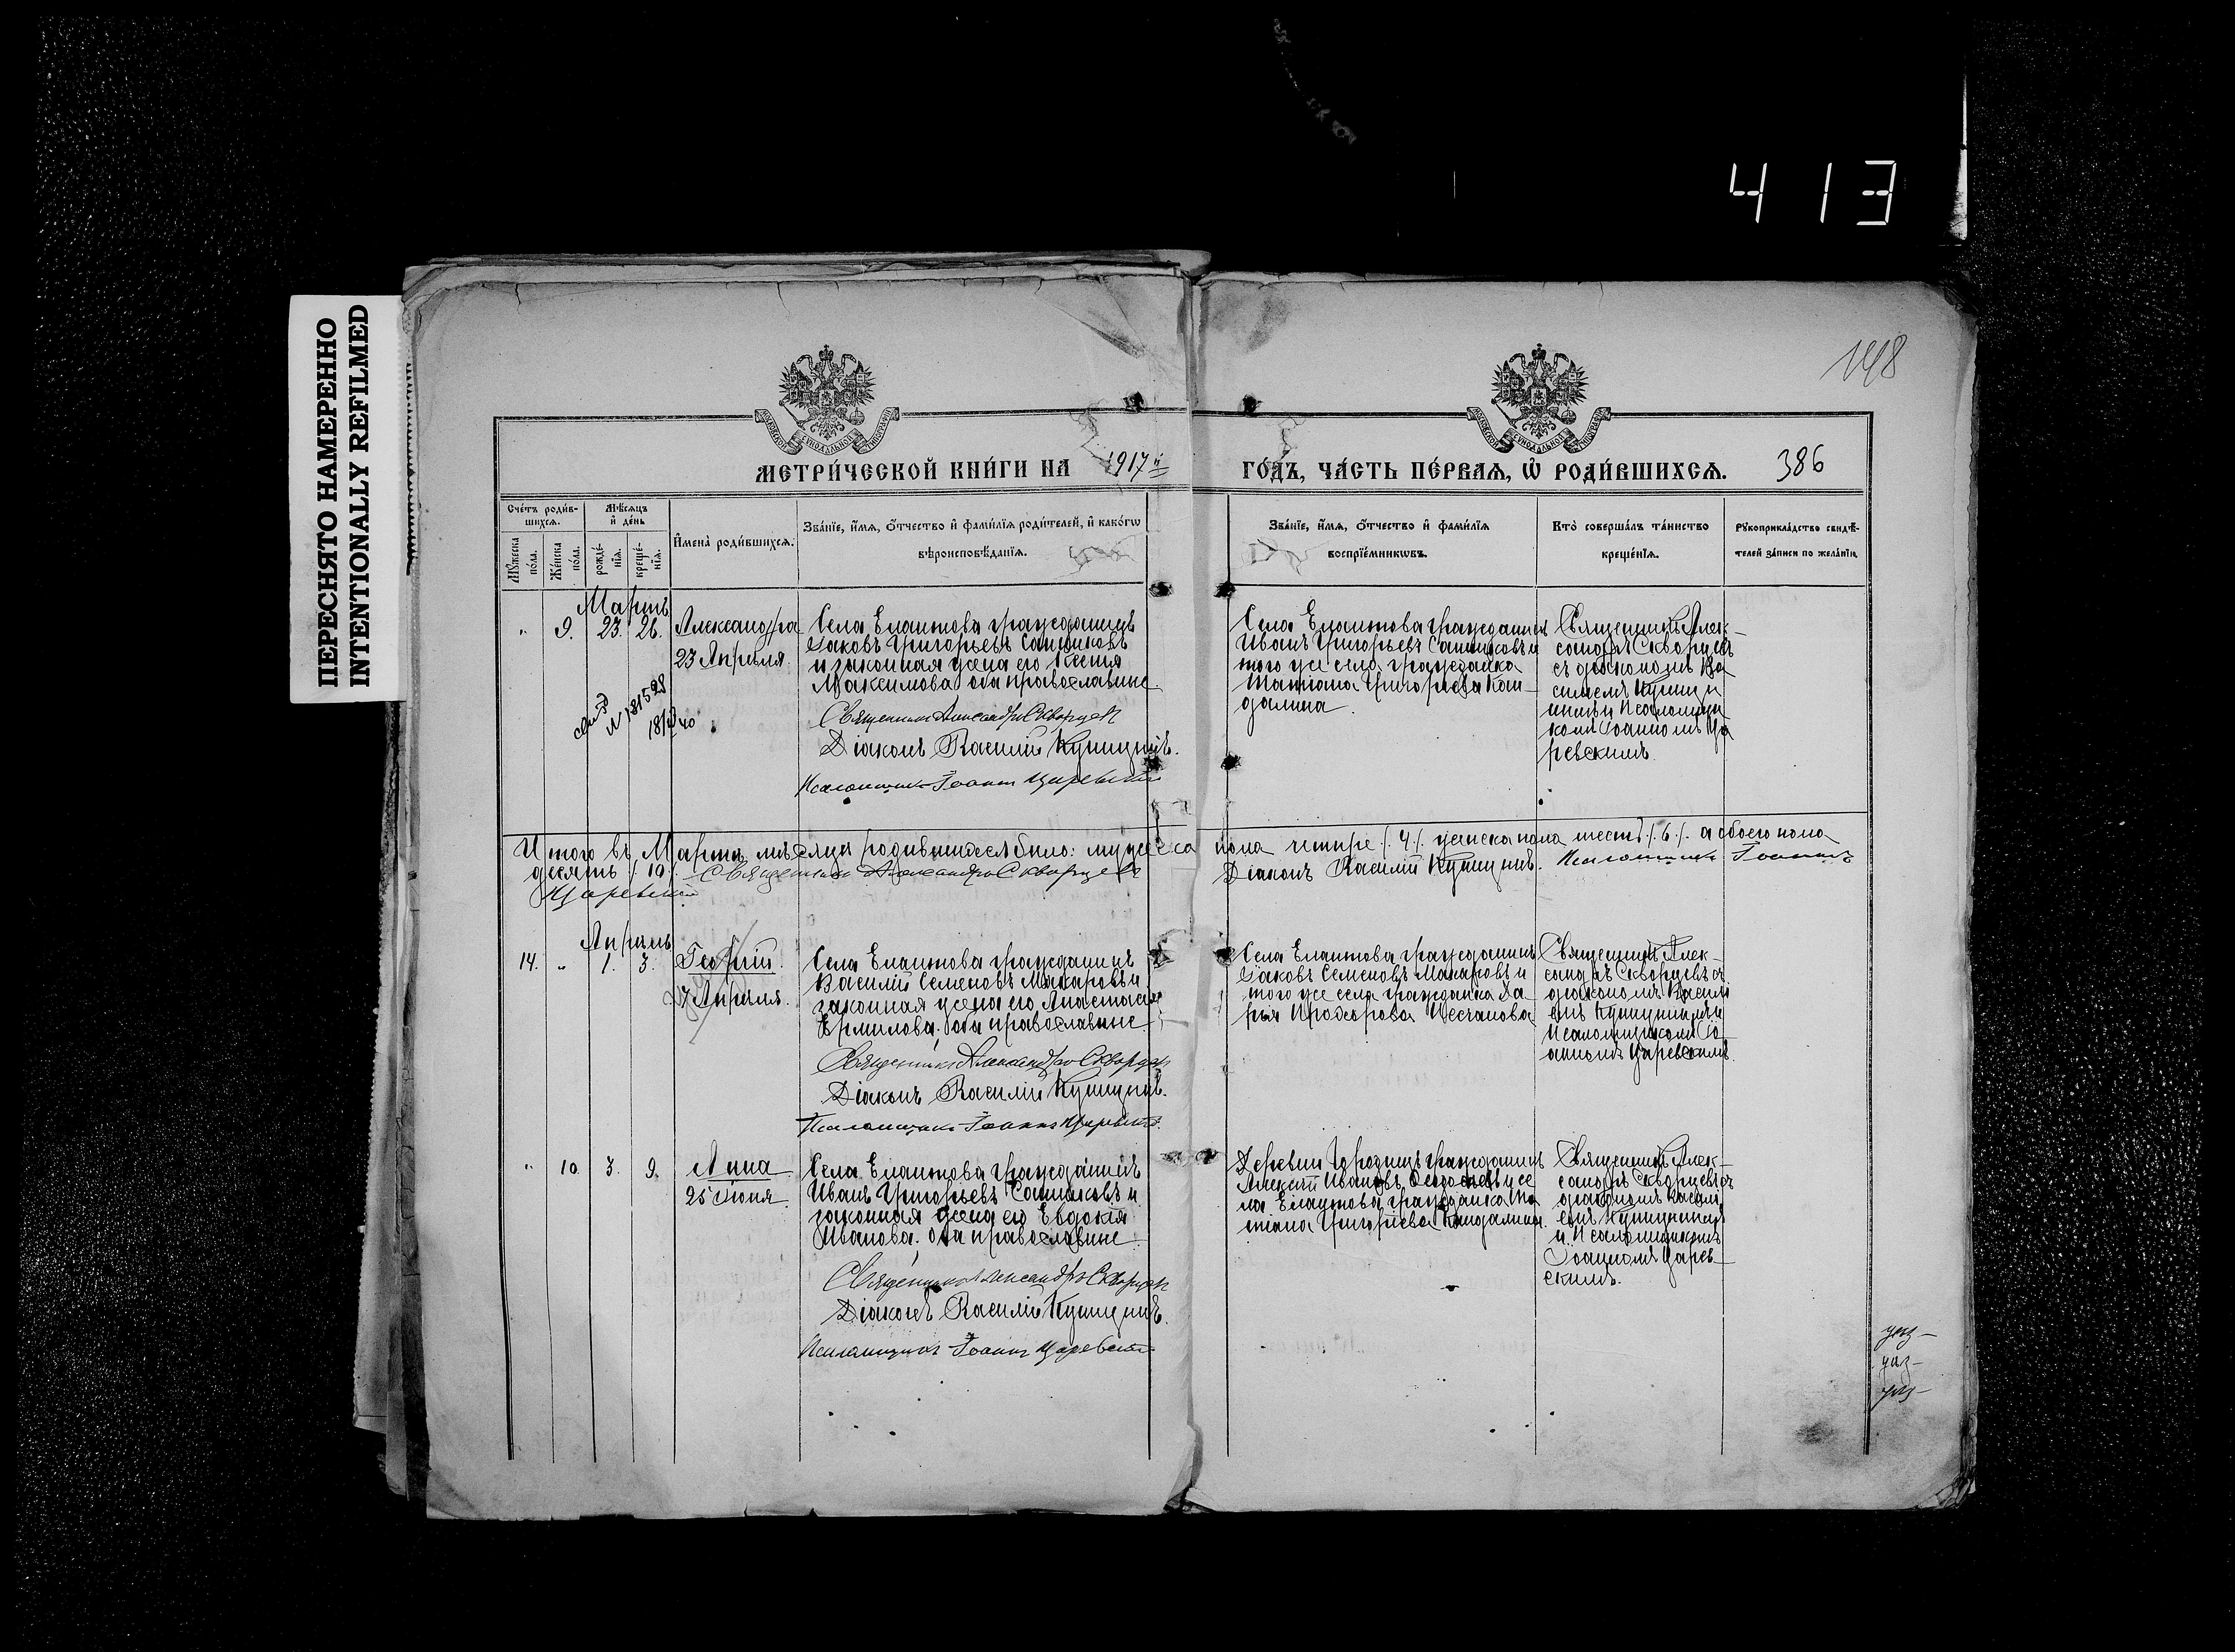 413
ПЕРЕСНЯТО НАМЕРЕННО
INTENTIONALLY REFILMED
148
МЕТРИ́ЧЕСКОЙ КНИ́ГИ НА 1917й
ГО́ДЪ, ЧА́СТЬ ПЕ́РВАѦ, Ѡ҆ РОДИ́ВШИХСѦ.
386
Сче́тъ роди́в-
шихсѧ.
Мѣ́сѧцъ
и҆ де́нь
Мꙋ́жеска
по́ла.
Же́нска
по́ла.
рожде́-
нїѧ.
креще́-
нїѧ.
И҆мена̀ роди́вшихсѧ.
Зва́нїе, и҆́мѧ, ѻ҆́тчество и҆ фами́лїѧ роди́телей, и҆ како́гѡ
вѣроисповѣ́данїѧ.
Зва́нїе, и҆́мѧ, ѻ҆́тчество и҆ фами́лїѧ
воспрїе́мникѡвъ.
Кто̀ соверша́лъ та́инство
креще́нїѧ.
Рꙋкоприкла́дство свидѣ́-
телей за́писи по жела́нїю.
Мартъ
" 9. 23. 26. Александра
23 Апрѣля.
Села Елатмова гражданинъ
Іаковъ Григорьевъ Сапожковъ
и законная жена его Ксенія
Максимова оба православные
Священникъ Александръ Скворцевъ
Діаконъ Василій Куницынъ.
Псаломщикъ Іоаннъ Царевскій
Села Елатмова гражданинъ
Иванъ Григорьевъ и
того же села гражданка
Татіана Григорьева Кан-
далина
Священникъ Алек-
сандръ Скворцевъ
съ діакономъ Ва
силіемъ Куницы
нымъ и Псаломщи
комъ Іоанномъ Ца
ревскимъ.
Итого въ Мартѣ мѣсяцѣ родившихся было: мужеска пола четыре /.4/. женска пола шесть /.6./. а обоего пола
десять /.10/. Священникъ Александръ Скворцевъ Діаконъ Василій Куницынъ. Псаломщикъ Іоаннъ
Царевскій
Апрѣль
14. " 1. 3. Георгій.
Апрѣля.
Села Елатмова гражданинъ
Василій Семеновъ Макаровъ и
законная жена его Анастасія
Ермилова. оба православные
Священникъ Александръ Скворцевъ
Діаконъ Василій Куницынъ.
Псаломщикъ Іоаннъ Царевскій.
Села Елатмова гражданинъ
Іаковъ Семеновъ Макаровъ и
того же села гражданка Да-
рья Прохорова
Священникъ Алек-
сандръ Скворцевъ съ
діакономъ Василі
емъ Куницынымъ и
Псаломщикомъ Іо-
анномъ Царевскимъ.
" 10 3. 9. Анна
25 Іюля
Села Елатмова гражданинъ
Иванъ Григорьевъ и
законная жена его Евдокія
Иванова. оба православные
Священникъ Александръ Скворцевъ
Діаконъ Василій Куницынъ.
Псаломщикъ Іоаннъ Царевскій
Деревни гражданинъ
Алексѣй Ивановъ и се
ла Елатмова гражданка Та
тіана Григорьева Кандалина.
Священникъ Алек-
сандръ Скворцевъ съ
діакономъ Василі
емъ Куницынымъ
и Псаломщикомъ
Іоанномъ Царев-
скимъ.